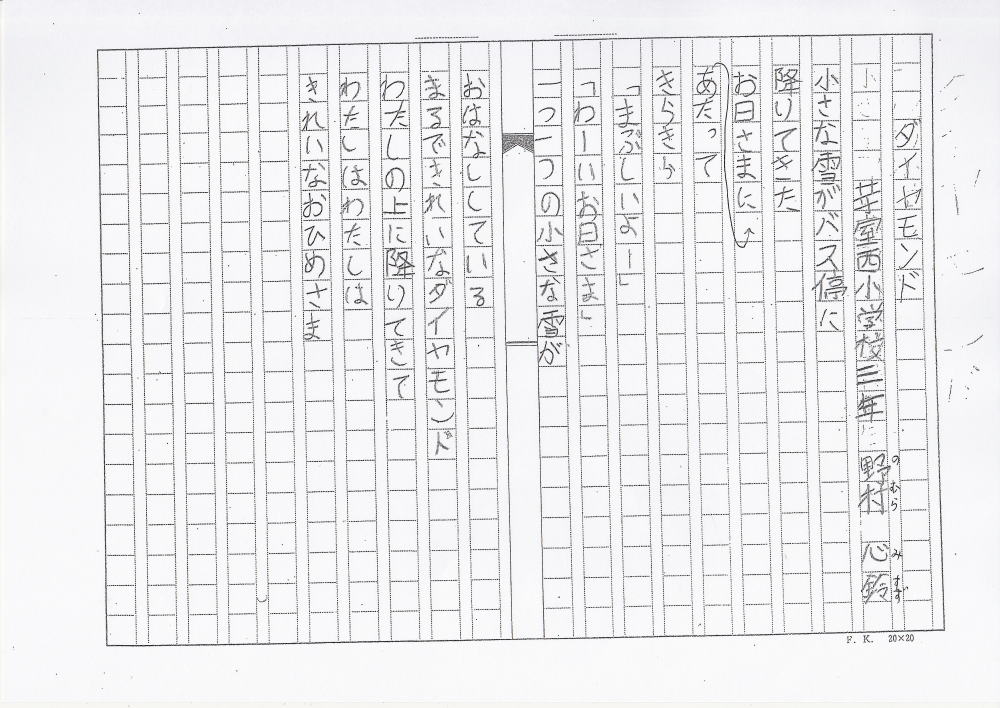 ダイヤモンド
芽室西小学校三年 野村 心鈴
のむら みすず
小さな雪がバス停に
降りてきた
お日さまに
あたって
きらきら
「まぶしいよー」
「わーいお日さま」
一つ一つの小さな雪が
おはなししている
まるできれいなダイヤモンド
わたしの上に降りてきて
わたしはわたしは
きれいなおひめさま
F. K. 20×20